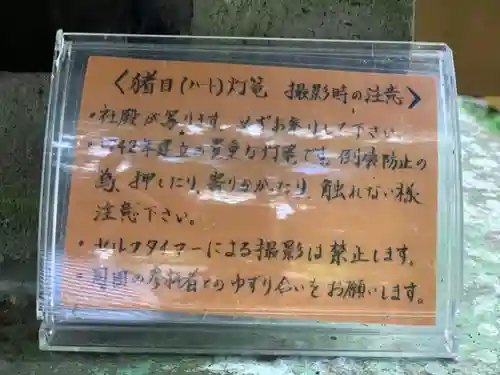 〈猪目(ハート)灯篭 撮影時の注意〉
・社殿が写ります。必ずお参りして下さい
42年建立の貴重な灯篭です。倒壊防止の
為、押したり、寄りかかったり、触れない様
注意下さい。
・セルフタイマーによる撮影は禁止します。
・周囲の参拝者とのゆずり合いをお願いします。